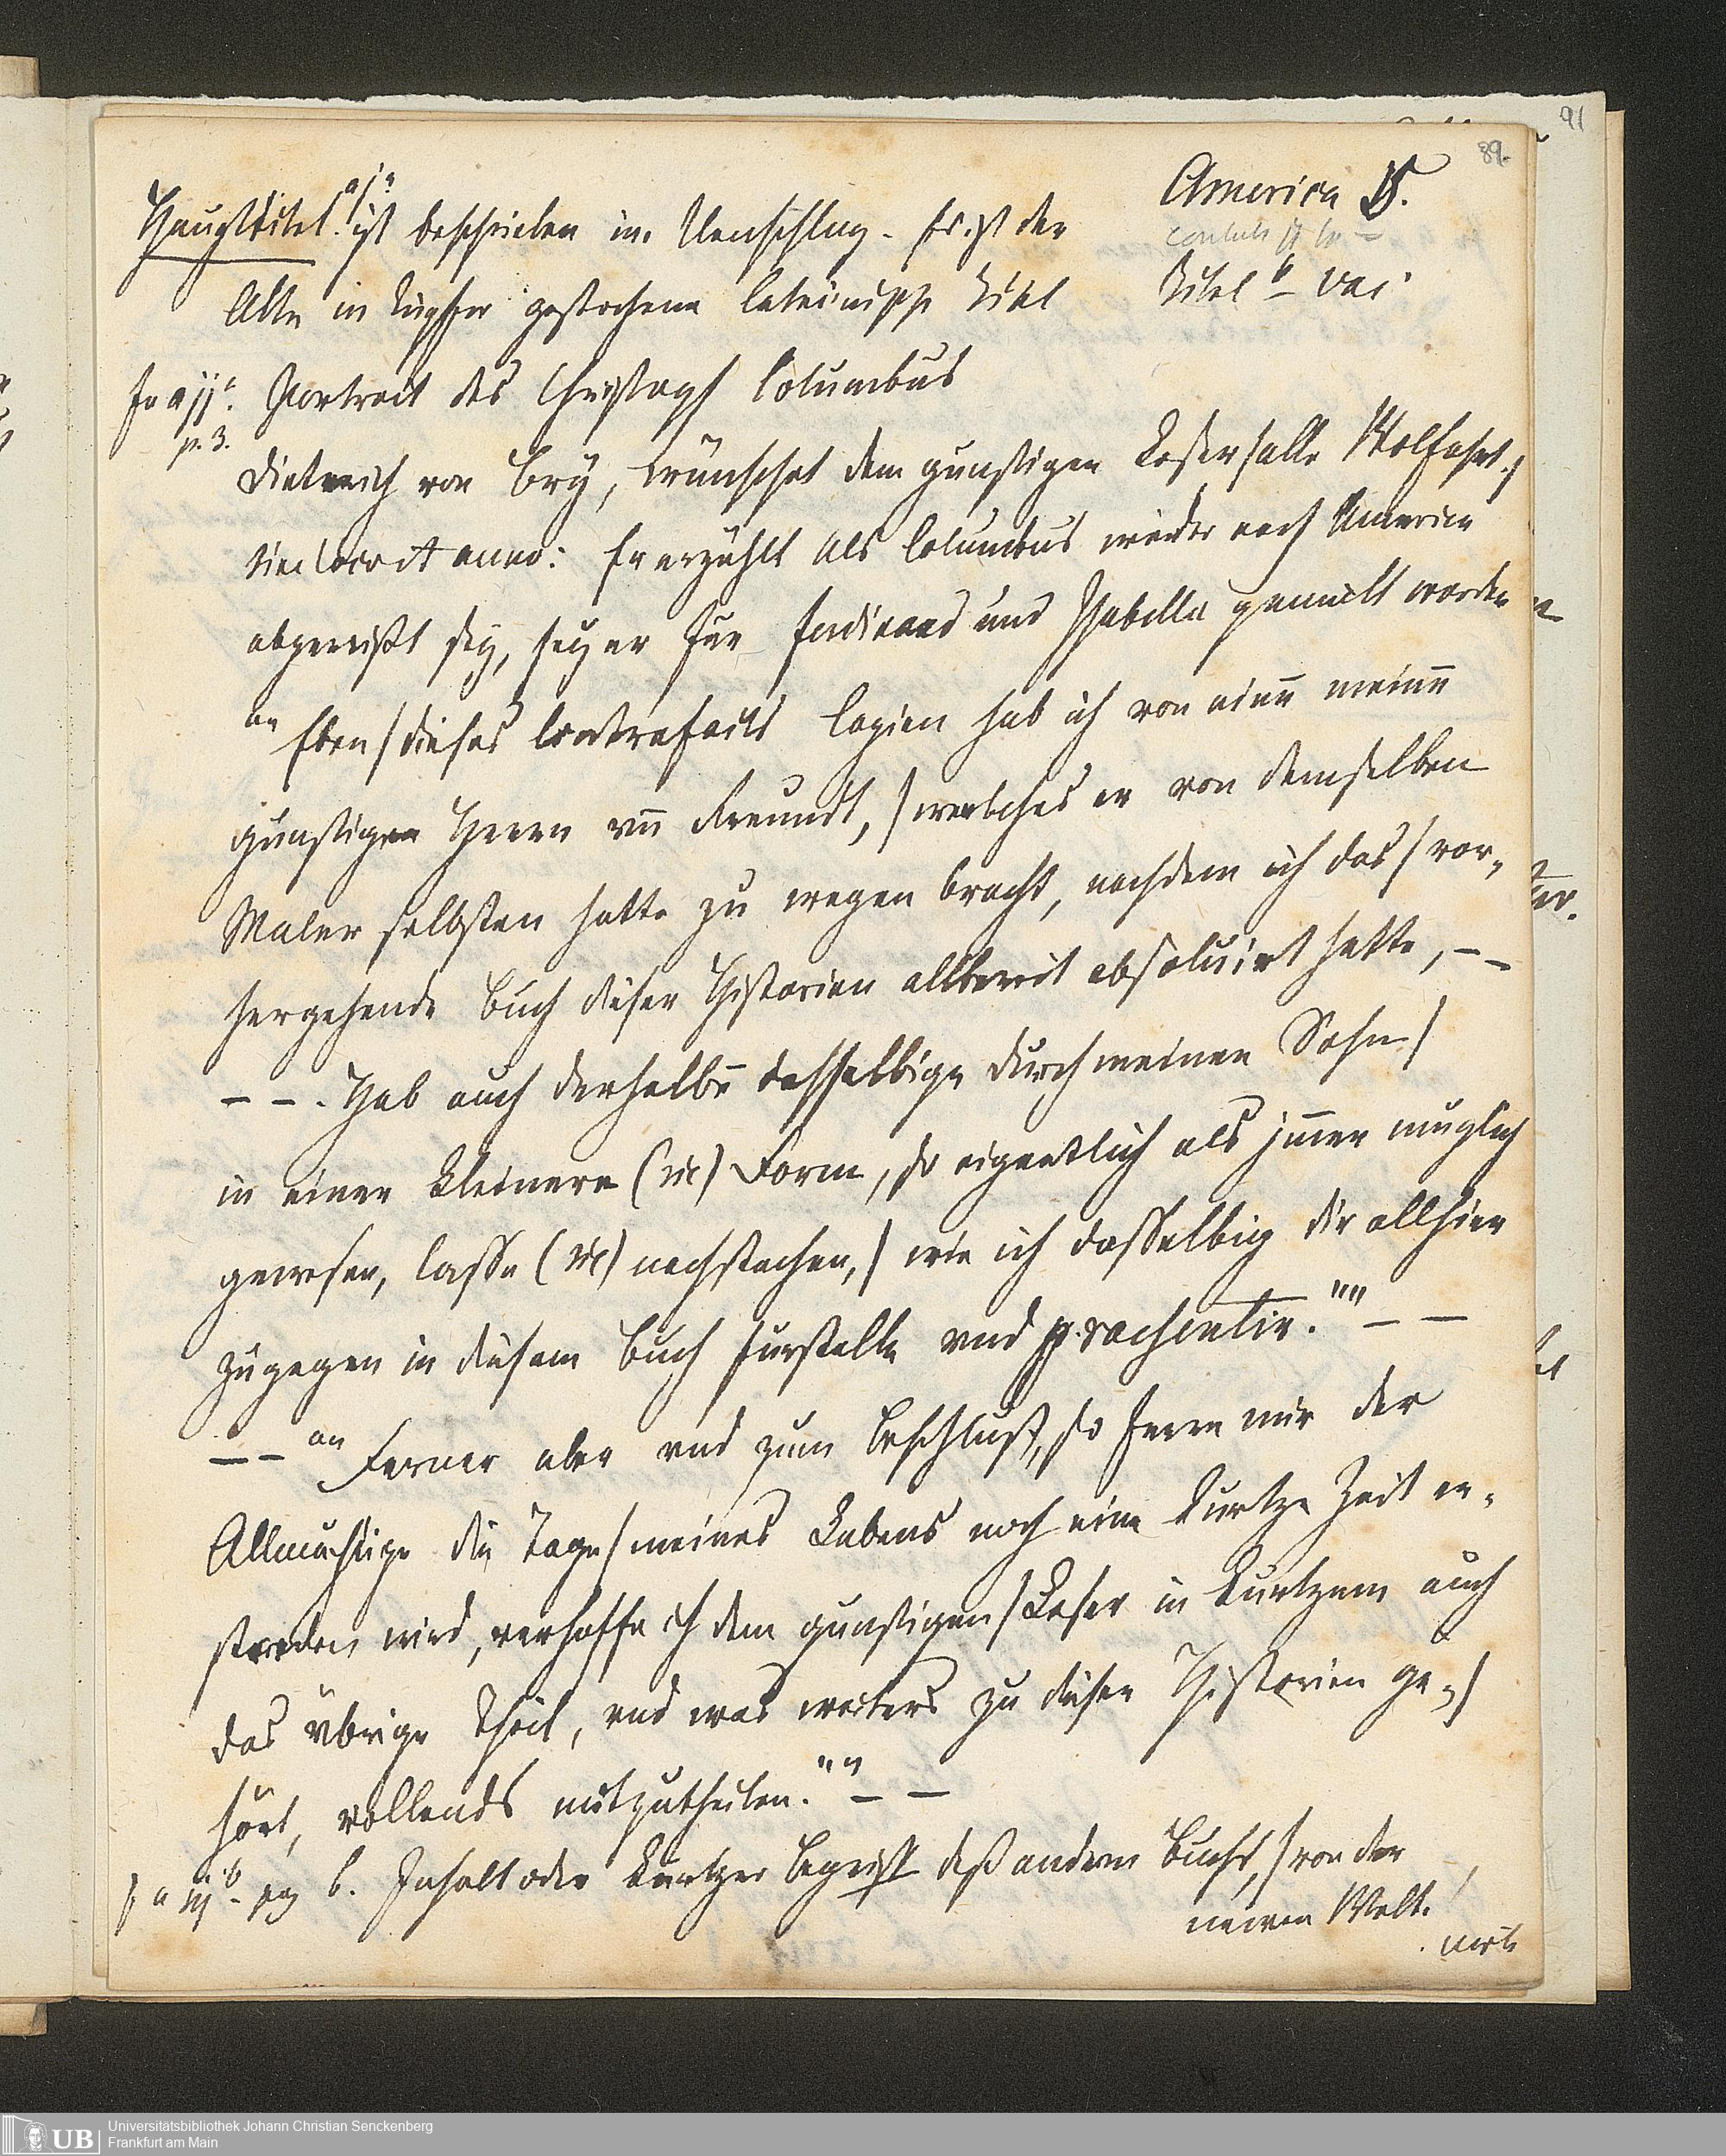 91
89.
America V.
Titel b vac.
Haupttitel. a j a ist beschrieben im Umschlag. Es ist der
Alte in Kupffer gestochene lateinische Titel
fo a ijª. Portrait des Christoph Columbus
p. 3.
Dietterich von Bry, wünschet dem gunstigen Leser, alle Wolfahrt. /
sine loco et anno: Er erzählt als Columbus wieder nach America
abgereißt sey, sey er für Ferdinand und Isabella gemalt worden
„„ Eben / dieses Contrafacts Copien hab ich von einē meinē
gunstigen Herrn vn̄ Freundt, / welches er von demselben
Maler selbsten hatte zu wegen bracht, nachdem ich das / vor-
hergehende Buch dieser Historien allbereit absoluirt hatte, – –
– – . Hab auch derhalbē dasselbige durch meinen Sohn /
in einer kleinern (sic) Form, so eigentlich als jmmer muglich
gewesen, lassen (sic) nachstechen, / wie ich dasselbig dir allhier
zugegen in diesem Buch furstelle vnd praesentir.““ – –
– – „„ Ferner aber vnd zum Beschluß, so ferrn mir der
Allmächtige die Tage / meines Lebens noch eine kurtze Zeit er-
strecken wird, verhoffe ich dem gunstigen / Leser in kurtzem auch
das vbrige Theil, vnd was weiters zu diesen Historien ge- /
hört, vollends mitzutheilen.““ – –
f a iij b. pag 6. Inhalt oder kurtzer Begriff deß andern Buchs, / von der
newen Welt. /
UB
Universitätsbibliothek Johann Christian Senckenberg
Frankfurt am Main